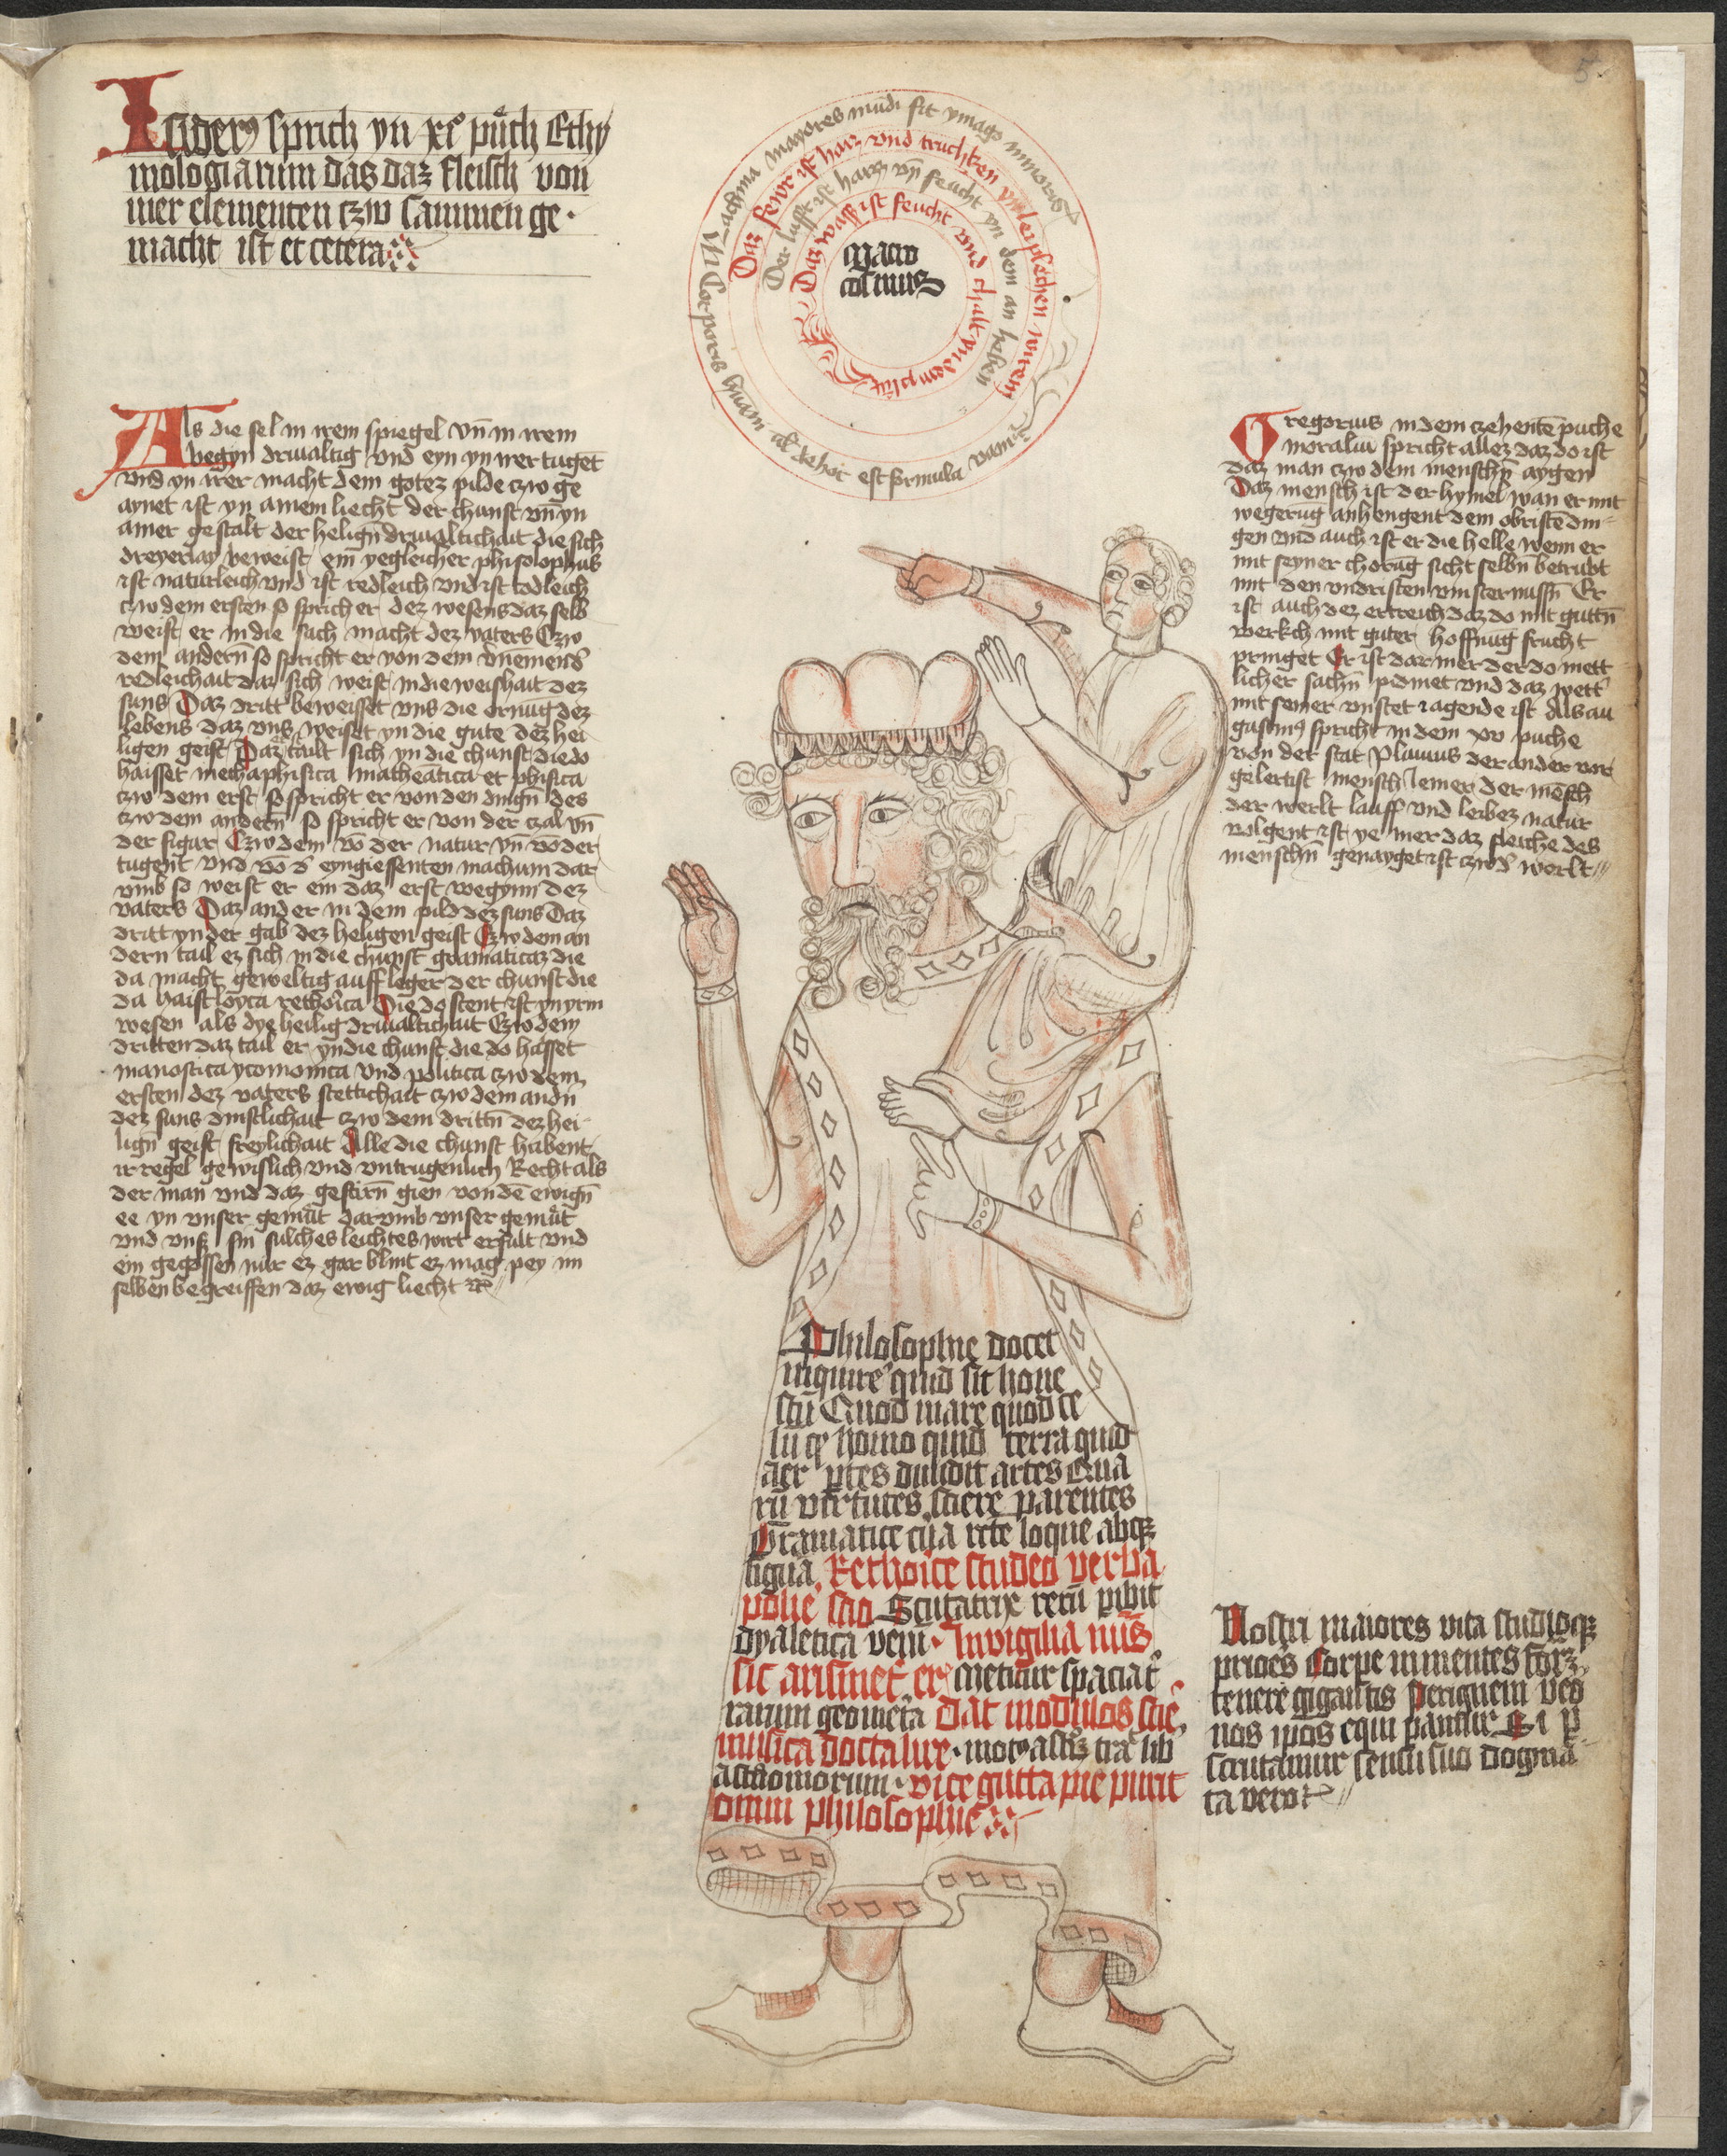 Isiderꝰ sprich yn xᵒ půch Ethy
mologiarum das daz fleisch von
uier elementen czw sammen ge-
macht ist et cetera
macro
cosmus
Daz wass ist feucht vnd chalt yn dem plůt
Der lufft ist haiz vn̄ feucht yn dem an heben
Daz fewr ist haiz vnd truchken yn leiplichen
Lachma mayores mūdi fit ymago minoris
Corporis hūam est formula
Als die sel in irem spiegel vn̄ in irem
begyn driualtig vnd eyn yn irer tuget̄
vnd yn irer macht dem gotez pilde czw ge
aynet ist yn ainem liecht der chunst vn̄ yn
ainer gestalt der heilign̄ driualtichait die sich
dreyerlay beweist ein̄ yegleicher philosophus
ist naturleich vnd ist redleich vnd ist todleich
czw dem ersten so sprich er dez wesens daz selb
weist er in die sach macht dez vaters Czw
dem andern̄ so spricht er von dem
redleichait daz sich weist in die weishait dez
suns Daz dritt beweisset vns die ornūg dez
lebens daz vns weiset yn die gute dez hei
ligen geist Daz tailt sich yn die chunst die do
haisset methaphisica matheātica et phisica
czw dem erst so spricht er von den dingn̄ des
czw dem andern̄ so spricht er von der czal vn̄
der figur Czw dem vō der natur vn̄ vō der
tugent vnd vō d' eyngiessenten machum dar
vmb so weist er ein daz erst wegynn dez
vaters Daz ander in dem pild dez suns Daz
dritt yn der gab dez heiligen geist Czw dem an
dern tail ez sich in die chunst gramaticaz die
da macht geweltig auff leger der chunst die
da haist loyca rethorica Die do stent ist yn yrm
wesen als dye heilig driualtichait Czw dem
dritten daz tail er yn die chunst die do haisset
manostica yconomica vnd politica czw dem
ersten dez vaters stettichait czw dem andn̄
dez suns dinstlichait czw dem drittn̄ dez hei-
lign̄ geist freylichait Alle die chunst habent
ir regel gewislich vnd vntrugenlich Recht als
der man vnd daz gestirn̄ gien von dē ewign̄
ee yn vnser gemůt darvmb vnser gemůt
vnd vnß sin sulches leichtes wirt erfult vnd
ein gegossen nur ez gar blint ez mag pey im
selben begreiffen daz ewig liecht
Gregorius in dem czehentē puche
moraliū spricht allez daz do ist
daz man czw dem menschn̄ aygen
Daz mensch ist der hymel wan er mit
wegerūg anhengent dem obristē din-
gen vnd auch ist er die helle wenn er
mit seyner chorūg sicht selbn̄ betrubt
mit den vndristen vinsternussn̄ Er
ist auch dez ertreich daz do mit guttn̄
werkch mit guter hoffnūg frucht
pringet Er ist dar mer der do mett
licher sachn̄ pidmet vnd daz wett'
mit seiner vnstet iagende ist Als au
gustinꝰ spricht in dem xv puche
von der stat Plauius der ander vor
gelertist mensch ainer der mēsch
der werlt lauff vnd leibez natur
volgent ist ye mer daz fleiche des
menschn̄ genayget ist czwd' werlt
Philosophie docet
inquire' quid sit hone
stū Quod mare quod ce
lū homo quid terra quid
aer ptes diuidit artes Qua
rū virtutes sciere parentes
Gramatice cūa recte loque absqꝫ
ligua Rethoice studeo verba
polire scio Scrutatrix rerū phibit
dyaletica veni Invigilia nūs
sic arismet'er Metitur spaciat'
rarum geomet̄a Dat modulos scie'
musica docta lire motꝰ astrꝫ tra' lib'
astronomorum vice gutta pie purit
omni philosophie
Nostri maiores vita studioqꝫ
priores Corpe inmentes forꝫ
tenere gigantis Periguem veo
nos ipos equi pantur Si p
scrutamur sensu suo dogma
ta vero